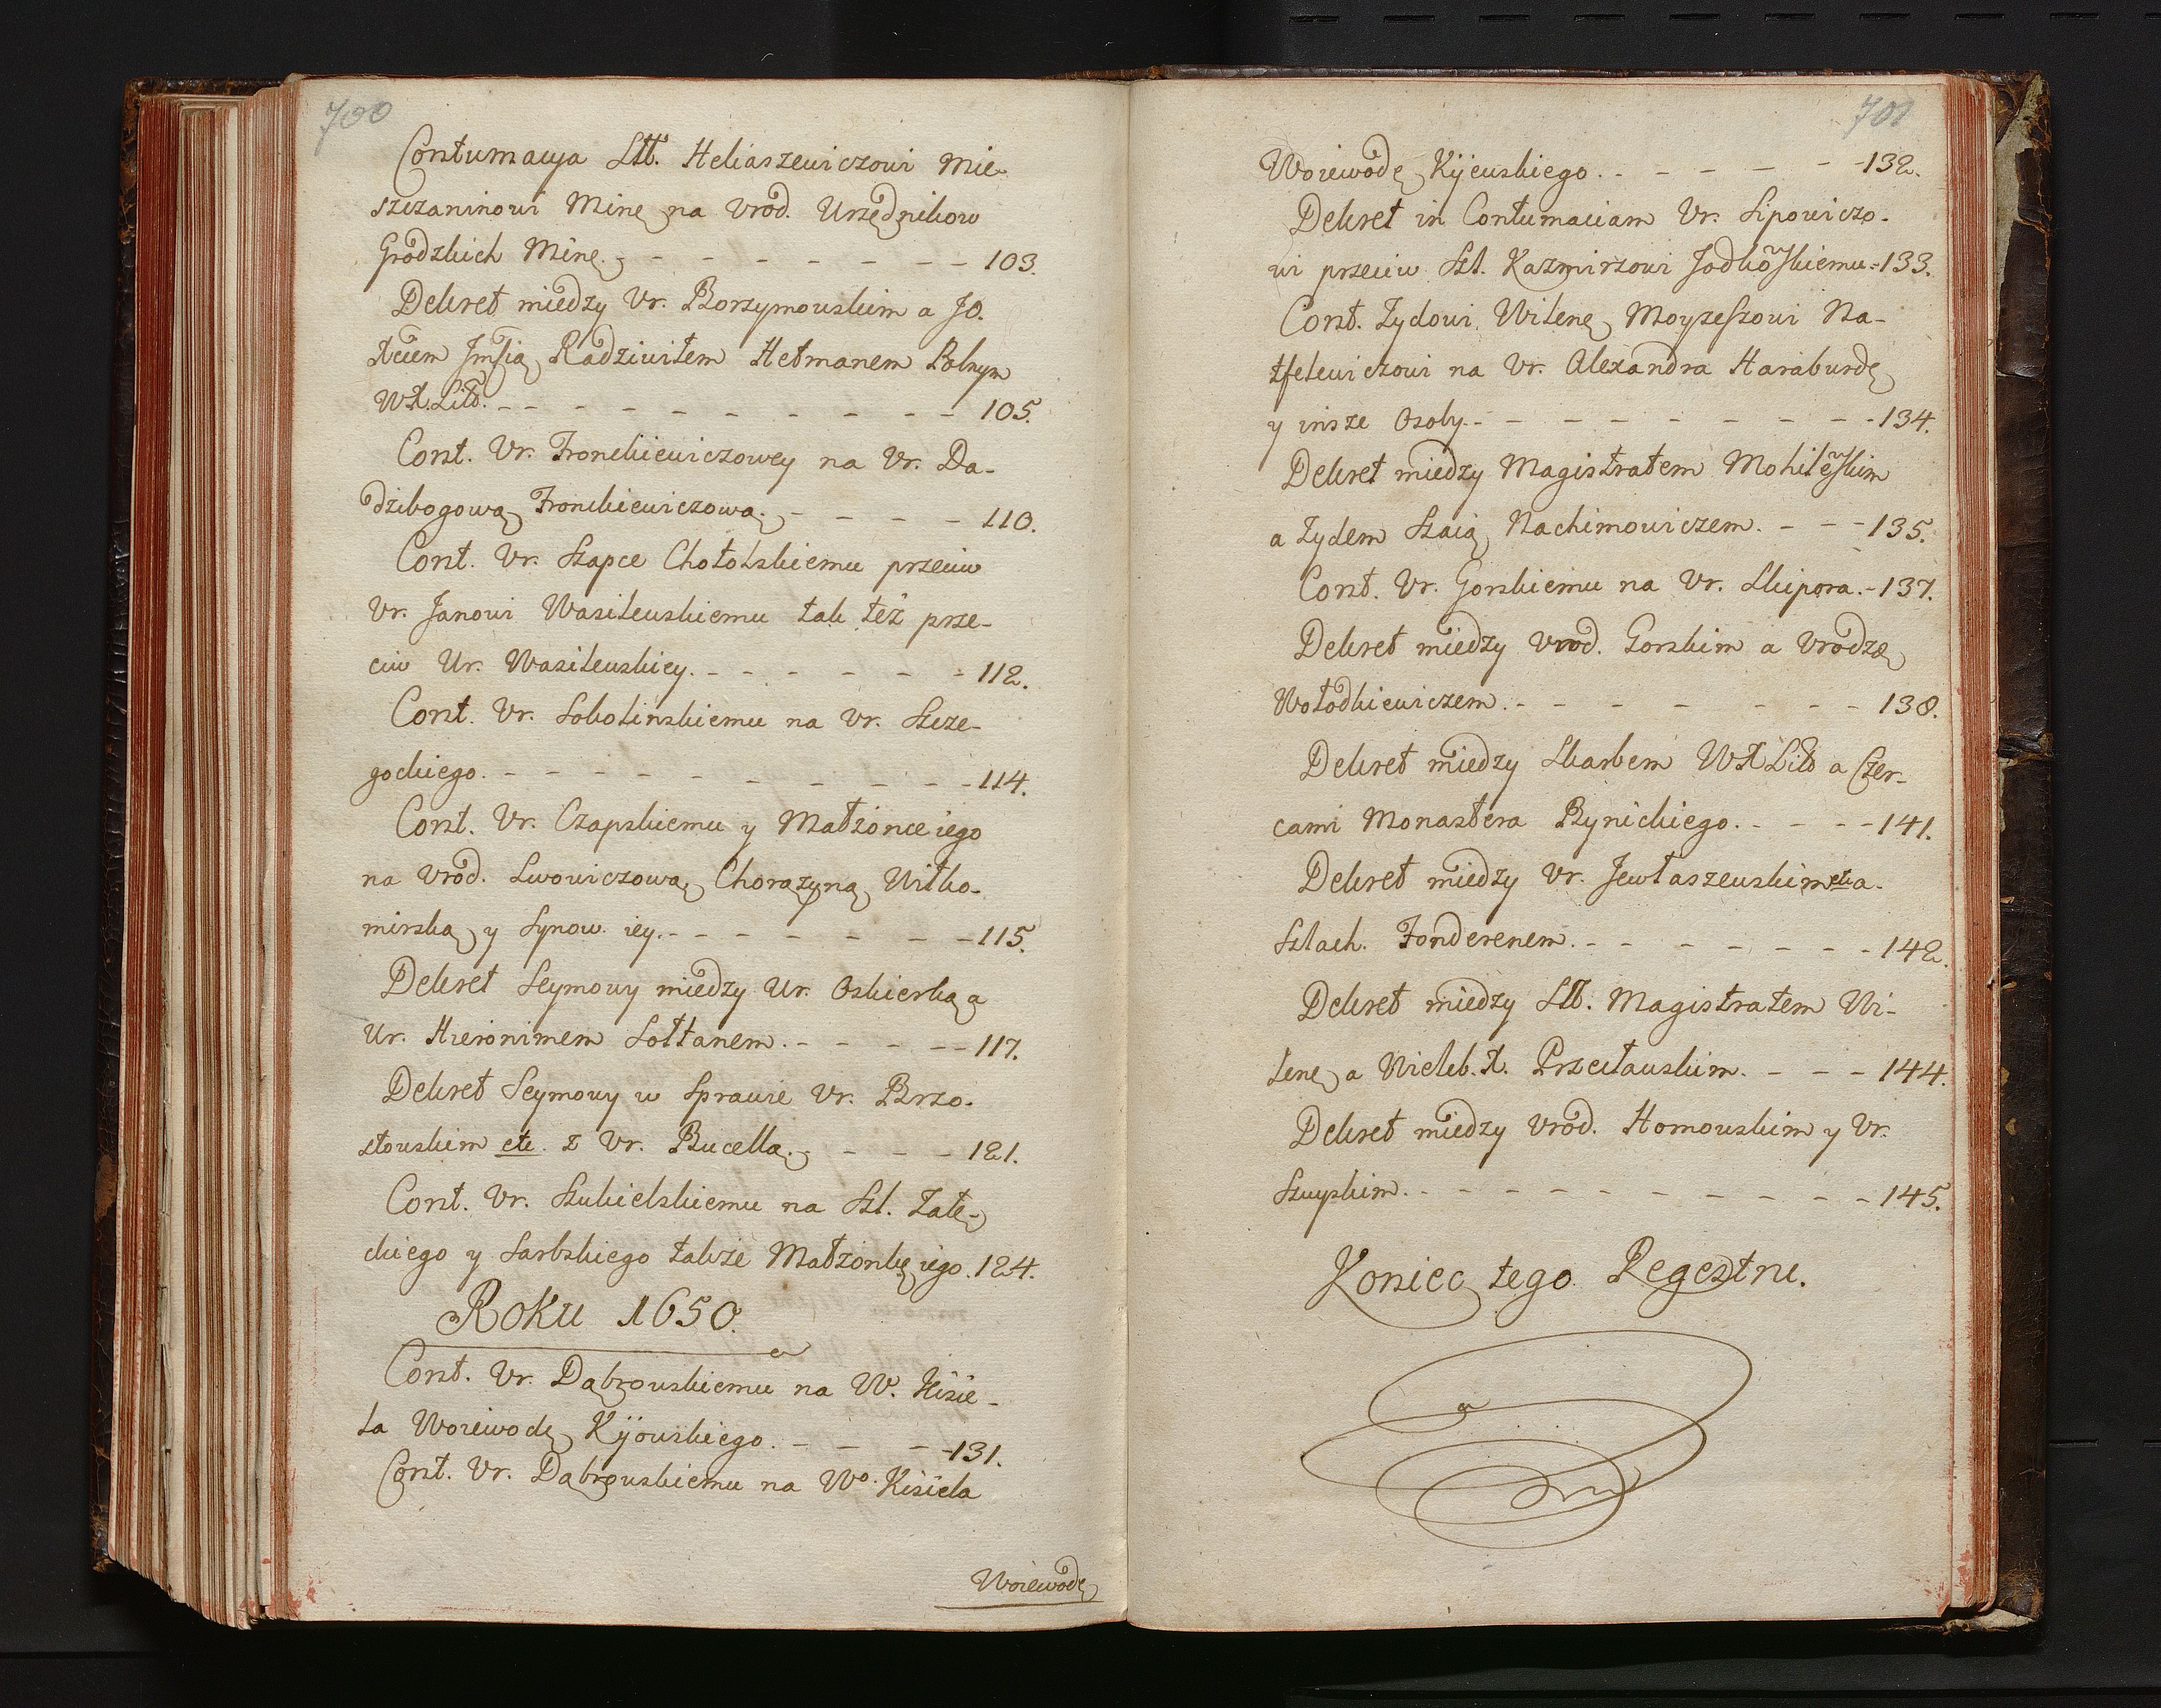 700
Contumacya Sltt. Heliaszewiczowi Mie-
szczaninowi Minę na Vrod. Urzędnikow
Grodzkich Minę. - - - - - - - - 103.
Dekret miedzy Vr. Borzymowskim a JO.
Xciem Jmścią Radziwiłem Hetmanem Polnym
WXLitt. - - - - - - - - - - 105.
Cont. Vr. Fronckiewiczowey na Vr. Da-
dzibogową Fronckiewiczową. - - - - 110.
Cont. Vr. Szapce Chotolskiemu przeciw
Vr. Janowi Wasilewskiemu tak też prze-
ciw Ur. Wasilewskiey. - - - - - - 112.
Cont. Vr. Sokolinskiemu na Vr. Szcze-
gockiego. - - - - - - - - - - 114.
Cont. Vr. Czapskiemu y Małżonce iego
na Vrod. Lwowiczową Chorążyną Wiłko-
mirską y Synow iey. - - - - - - - 115.
Dekret Seymowy miedzy Ur. Oskierką a
Ur. Hieronimem Sołtanem. - - - - - 117.
Dekret Seymowy w Sprawie Vr. Brzo-
stowskim etc. z Vr. Bucellą. - - - - 121.
Cont. Vr. Szukielskiemu na Szl. Zale-
ckiego y Sarbskiego także Małżonkę iego. 124.
Roku 1650.
Cont. Vr. Dąbrowskiemu na W. Kisie-
la Woiewodę Kijowskiego. - - - - 131.
Cont. Vr. Dąbrowskiemu na Wo. Kisiela
Woiewodę
701
Woiewodę Kijewskiego. - - - - - - 132.
Dekret in Contumaciam Vr. Lipowiczo-
wi przeciw Szl. Kazmirzowi Jodkoskiemu. - 133.
Cont. Zydowi Wilenę Moyzeszowi Na-
tfelewiczowi na Vr. Alexandra Haraburdę
y insze Osoby. - - - - - - - - - 134.
Dekret miedzy Magistratem Mohileskim
a Zydem Szaią Nachimowiczem. - - - 135.
Cont. Vr. Gorskiemu na Vr. Skipora. - 137.
Dekret miedzy Vrod. Gorskim a Vrodzę
Wołodkiewiczem. - - - - - - - - 138.
Dekret miedzy Skarbem WXLitt a Czer-
cami Monastera Bynickiego. - - - - 141.
Dekret miedzy Vr. Jewłaszewskim etc a
Szlach. Fonderenem. - - - - - - - 142.
Dekret miedzy Sltt. Magistratem Wi-
lenę a Wieleb. X. Przecławskim. - - - 144.
Dekret miedzy Vrod. Homowskim y Vr.
Szuyskim. - - - - - - - - - - 145.
Koniec tego Regestru.